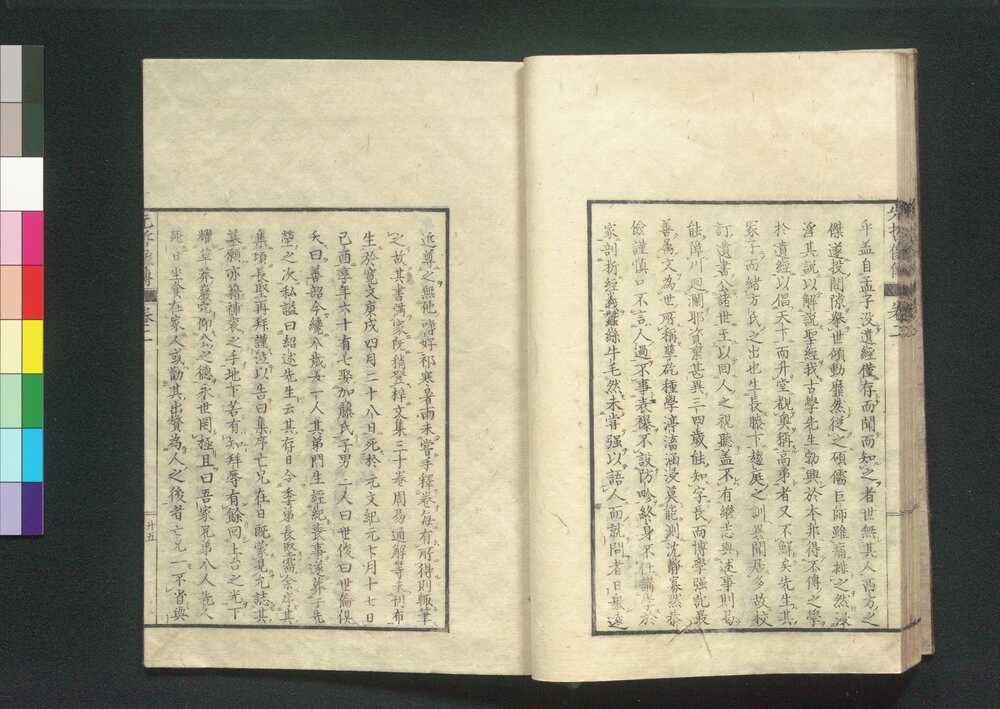 乎盖自孟子没遺經僅存而聞而知之者世無其人西方之
傑遂投間隙舉世傾動靡然從之碩儒巨師雖痛排之然深
淫其説以解説聖經我古學先生勃興於本邦得不傳之學
於遺經以倡天下而升堂觀奥稱高弟者又不鮮矣先生其
冢子而緒方氏之出也生長膝下趨庭之訓異聞居多故校
訂遺書公諸世王以回人之視聽盖不有繼志與述事則易
能障川廻瀾耶資禀甚異三四歳能知字長而博學强記最
善属文為世所稱準砣種學渟滀涵浸莫能測沈靜寡然恭
儉謹愼口不言人過不事表襮不設防畛終身不仕講學於
家剖析經義蠶絲牛毛然未嘗强以語人而就問者日衆遠
近尊之無他嗜好祁寒暑雨未嘗手釋卷每有所得則輙筆
之故其書満家既稍登梓文集三十卷周易通解等未刊布
生於寛文庚戌四月二十八日死於元文紀元七月十七日
己酉享年六十有七娶加藤氏子男二人曰世俊曰世倫俱
夭曰善韶今纔八歳女一人其弟門生經紀喪事遂葬于先
塋之次私謚曰紹述先生云其存日令季弟長堅需余序其
集頃長堅再拜謹泣以告曰集序亡兄在日既蒙見允誌其
墓願亦藉補袞之手地下若有知拜辱有餘同上台之光下
耀草莽巖穴仰公之德永世罔極且曰吾家兄弟八人先人
死日坐食在家人或勸其出贅為人之後者亡兄一不肯奥
卷二
卷二
廿五